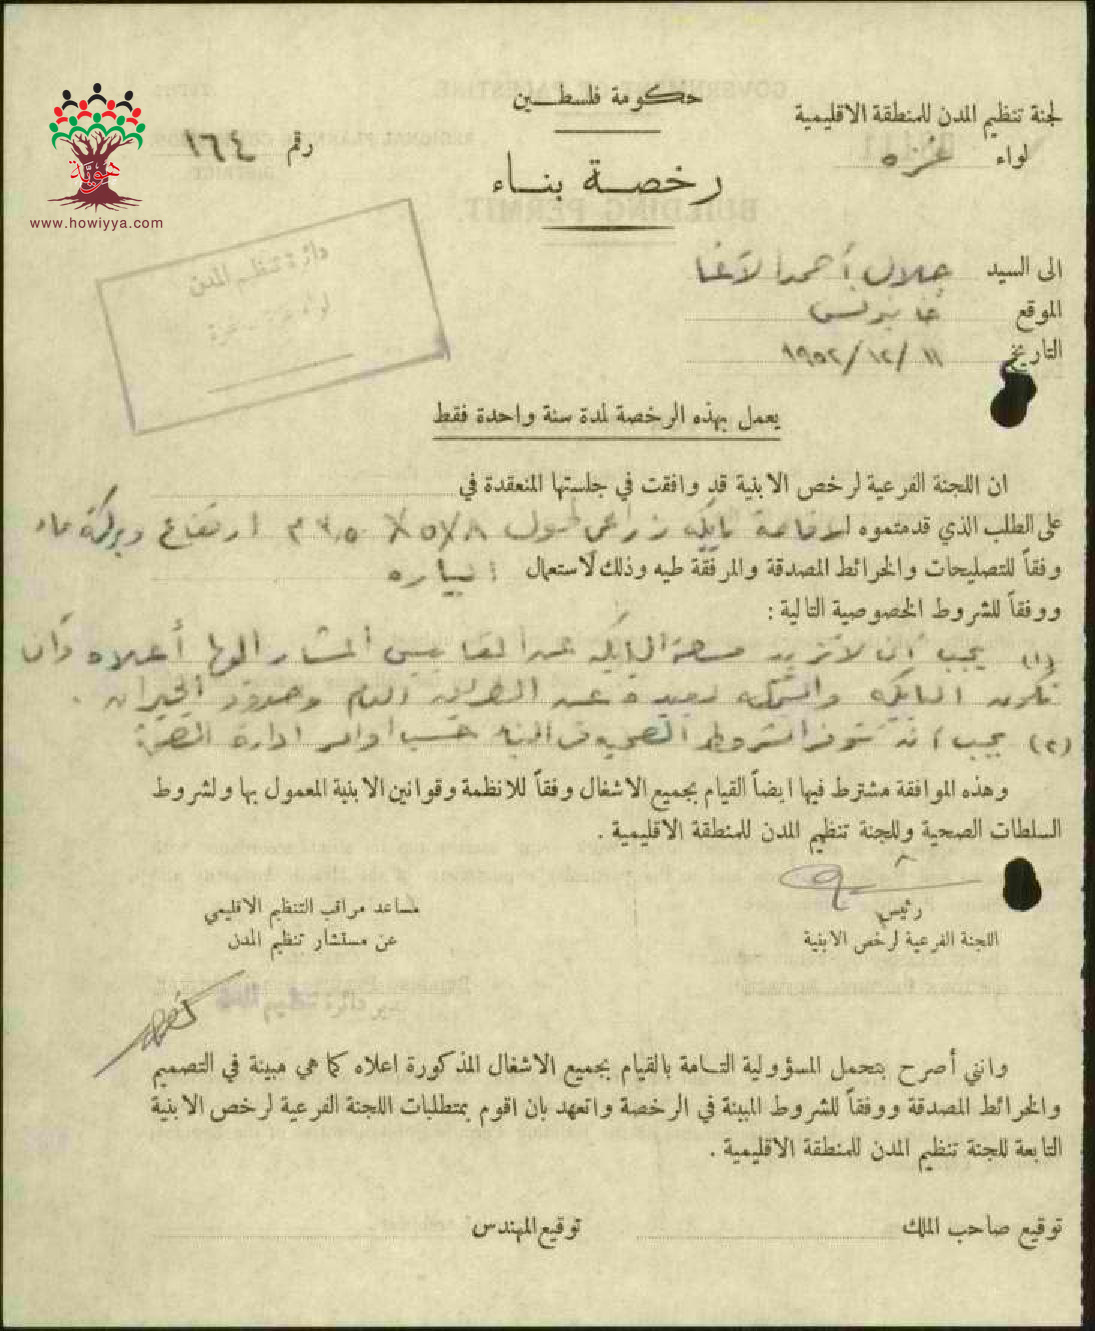 حكومة فلسطين
لجنة تنظيم المدن للمنطقة الاقليمية
لواء غزه
رقم ١٦٤
رخصة بناء
هوية
www.howiyya.com
دائرة تنظيم المدن
لواء غزة - غزة
الى السيد جلال أحمد الآغا
الموقع خانيونس
التاريخ ١١ / ١٢ / ١٩٥٢
يعمل بهذه الرخصة لمدة سنة واحدة فقط
ان اللجنة الفرعية لرخص الابنية قد وافقت في جلستها المنعقدة في
على الطلب الذي قدمتموه لاقامة بايكه زراعي طول ارتفاع وبركة ماء
وفقاً للتصليحات والخرائط المصدقة والمرفقة طيه وذلك لاستعمال البياره
ووفقاً للشروط الخصوصية التالية :
(١) يجب أن لا تزيد مسحة البايكه عن المقاييس المشار اليها أعلاه وأن
تكون البايكه والبركه بعيدة عن الطريق العام وحدود الجيران .
(٢) يجب ان تتوفر الشروط الصحيه في البناء حسب اوامر ادارة الصحة
وهذه الموافقة مشترط فيها ايضاً القيام بجميع الاشغال وفقاً للانظمة وقوانين الابنية المعمول بها ولشروط
السلطات الصحية وللجنة تنظيم المدن للمنطقة الاقليمية .
رئيس
اللجنة الفرعية لرخص الابنية
مساعد مراقب التنظيم الاقليمي
عن مستشار تنظيم المدن
مدير دائرة تنظيم المدن
وانني أصرح بتحمل المسؤولية التامة بالقيام بجميع الاشغال المذكورة اعلاه كما هي مبينة في التصميم
والخرائط المصدقة ووفقاً للشروط المبينة في الرخصة واتعهد بان اقوم بمتطلبات اللجنة الفرعية لرخص الابنية
التابعة للجنة تنظيم المدن للمنطقة الاقليمية .
توقيع صاحب الملك
توقيع المهندس